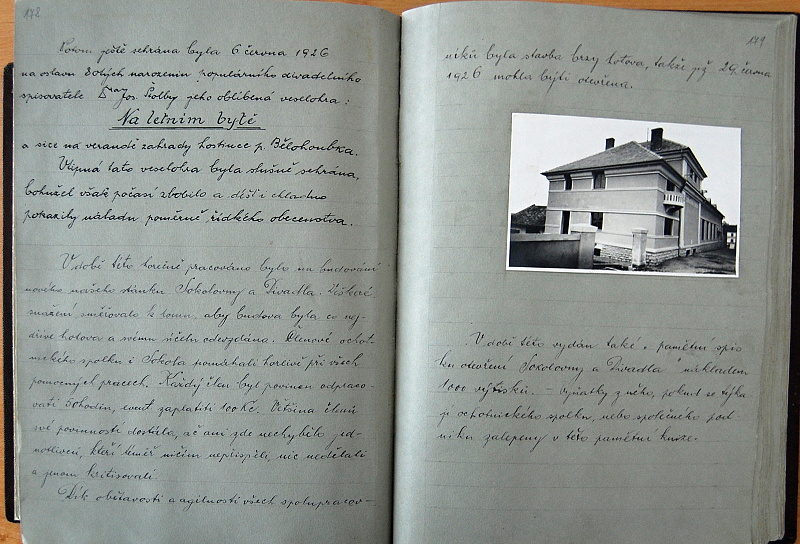 178
Potom ještě sehrána byla 6 června 1926
na oslavu 80tých narozenin populárního divadelního
spisovatele Dra Jos. Štolby jeho oblíbená veselohra:
Na letním bytě
a sice na verandě zahrady hostince p. Bělohoubka.
Vtipná tato veselohra byla slušně sehrána,
bohužel však počasí zlobilo a déšť i chladno
pokazily náladu poměrně řídkého obecenstva.
V době této horečně pracováno bylo na budování
nového našeho stánku Sokolovny a Divadla. Veškeré
snažení směřovalo k tomu, aby budova byla co nej-
dříve hotova a svému účelu odevzdána. Členové ochot-
nického spolku i Sokola pomáhali horlivě při všech
pomocných pracech. Každý člen byl povinen odpraco-
vati 50 hodin, event. zaplatiti 100 Kč. Většina členů
své povinnosti dostála, ač ani zde nechybělo jed-
notlivců, kteří téměř ničím nepřispěli, nic nedělali
a jenom kritisovali.
Dík obětavosti a agilnosti všech spolupracov-
179
níků byla stavba brzy hotova, takže již 29. června
1926 mohla býti otevřena.
V době této vydán také „pamětní spis
ku otevření Sokolovny a Divadla" nákladem
1000 výtisků. – Výňatky z něho, pokud se týká
je ochotnického spolku, nebo společného pod-
niku zalepeny v této pamětní knize.